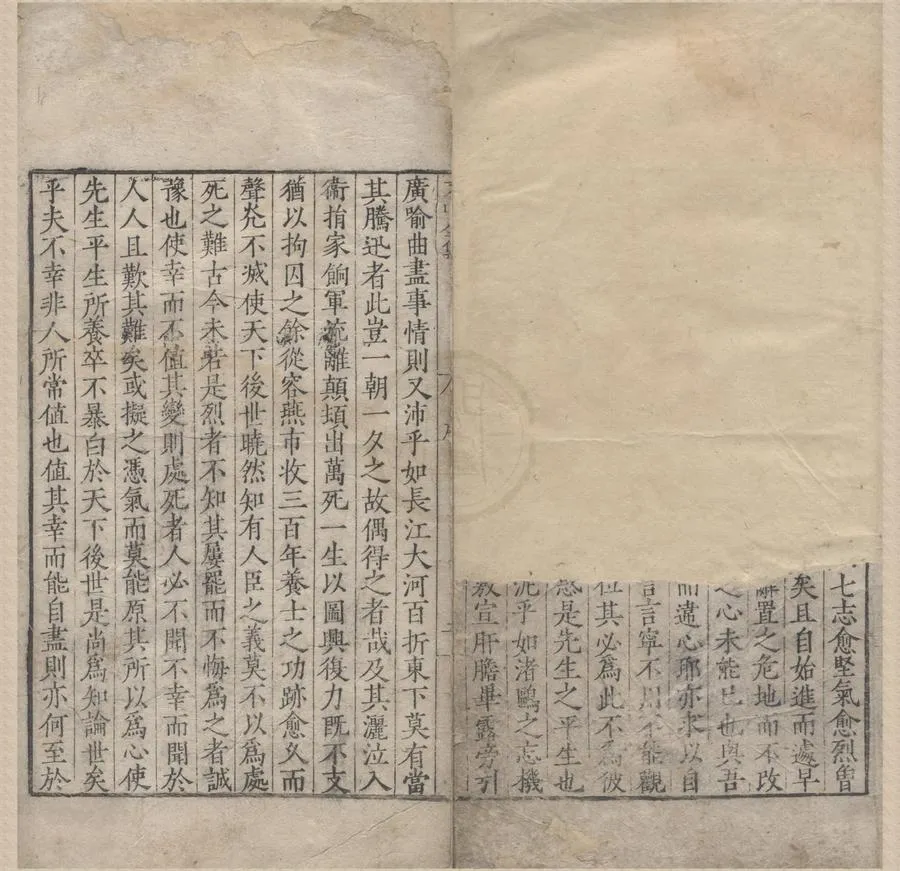 七志愈堅氣愈烈曾
矣且自始進而處早
辭置之危地而不改
之心未能已也與吾
而違心耶亦求以自
言言寧不用不能觀
位其必爲此不爲彼
是先生之平生也
泥乎如渚鷗之忘機
敷宣肝膽畢露旁引
廣喻曲盡事情則又沛乎如長江大河百折東下莫有當
其騰迅者此豈一朝一夕之故偶得之者哉及其灑泣入
衞捐家餉軍流離顛頓出萬死一生以圖興復力旣不支
猶以拘囚之餘從容燕市收三百年養士之功跡愈久而
聲光不滅使天下後世曉然知有人臣之義莫不以爲處
死之難古今未若是烈者不知其屢罷而不悔爲之者誠
豫也使幸而不值其變則處死者人必不聞不幸而聞於
人人且歎其難矣或擬之憑氣而莫能原其所以爲心使
先生平生所養卒不暴白於天下後世是尚爲知論世矣
乎夫不幸非人所常值也值其幸而能自盡則亦何至於